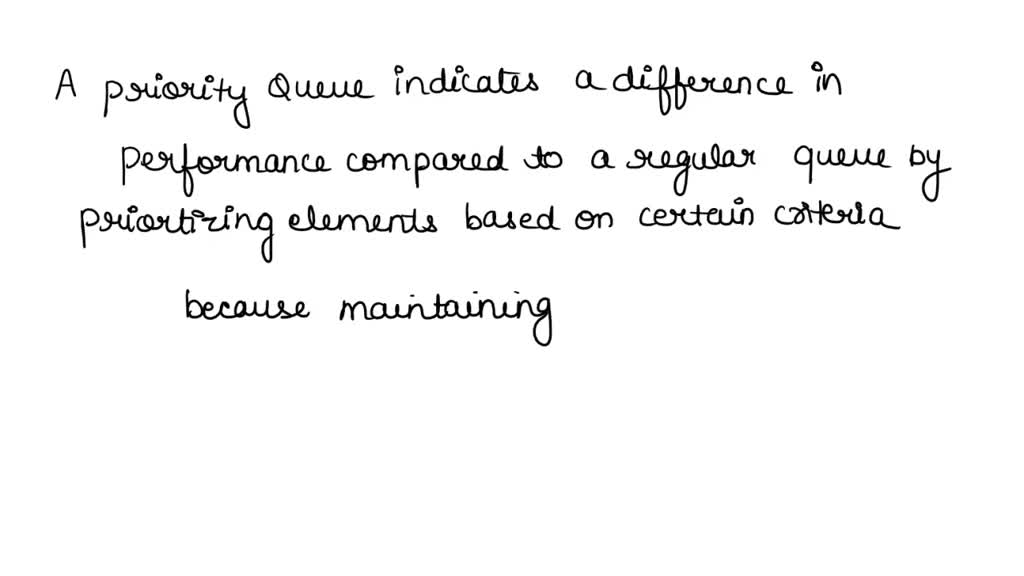 A priority Queue indicates a difference in
performance compared to a regular queue by
priortizing elements based on certain criteria
because maintaining